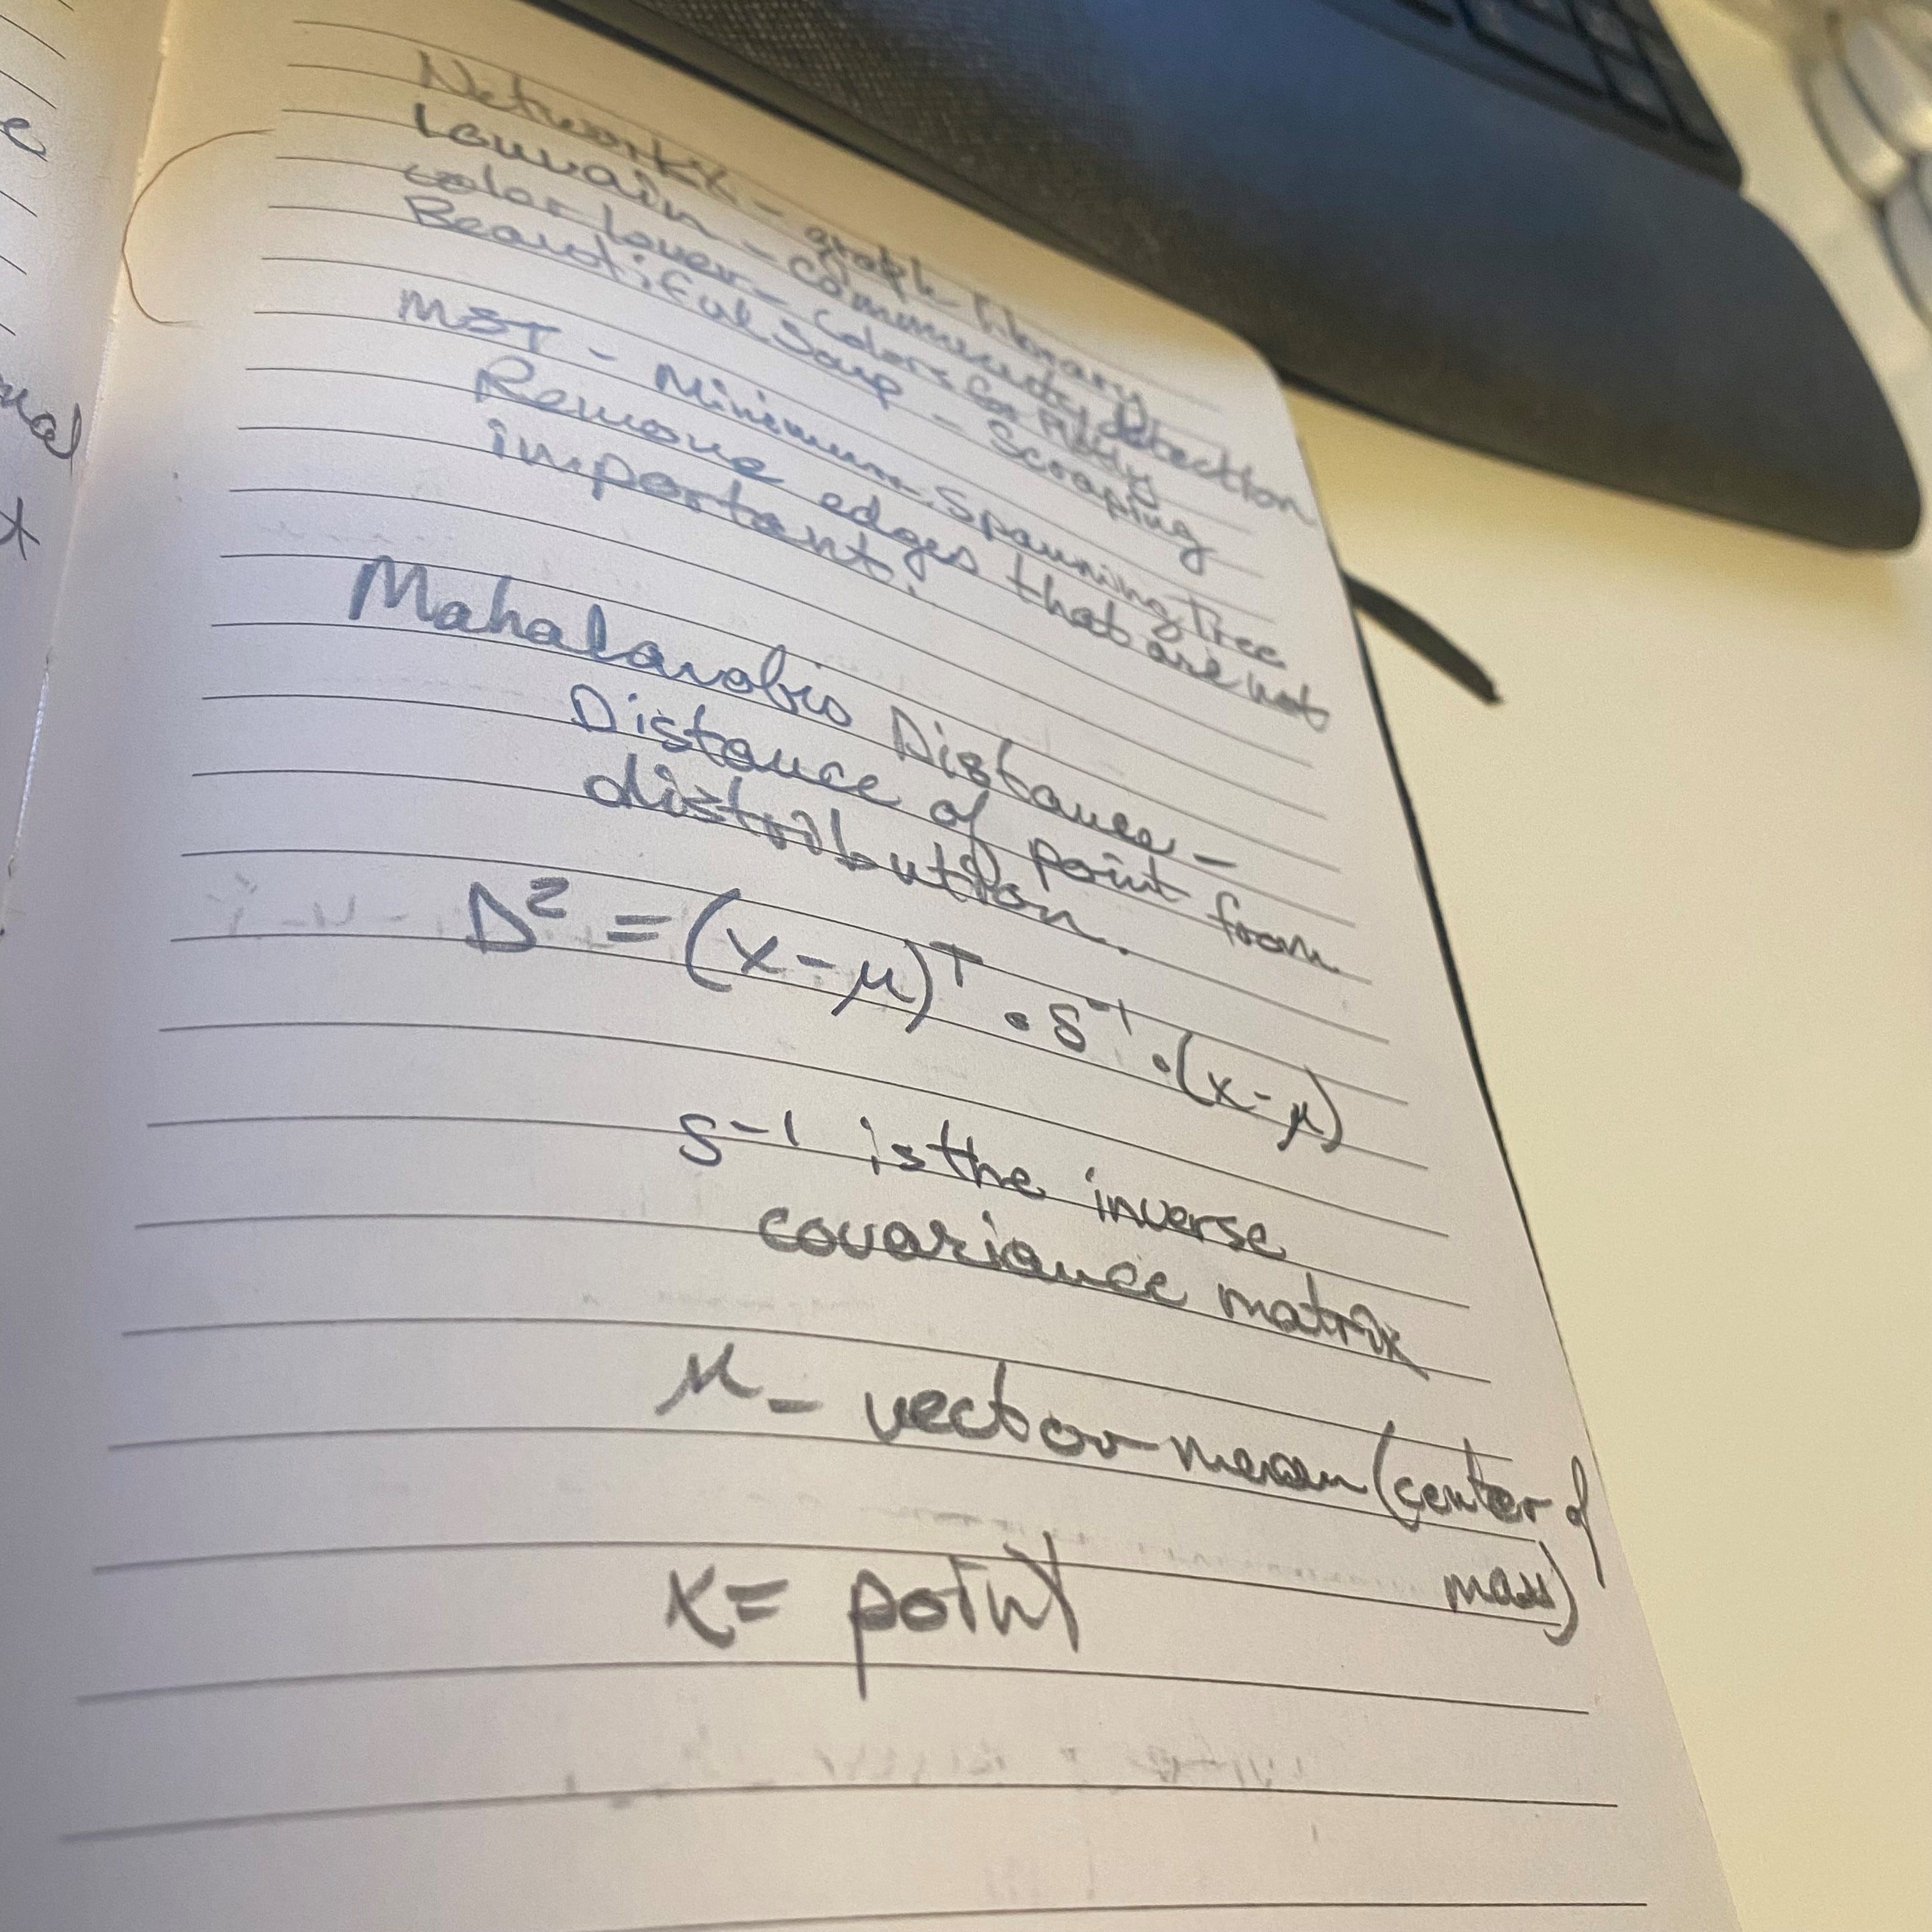 e
nal
t
NetworkX - graph library
Louvain - Community detection
color lover - Colors for Plotly
Beautiful Soup - Scraping
MST - Minimum Spanning Tree
Remove edges that are not
important.
Mahalanobis Distance -
Distance of point from
distribution.
D² = (x-μ)ᵀ • S⁻¹ • (x-μ)
S⁻¹ is the inverse
covariance matrix
μ - vector mean (center of
mass)
x = point